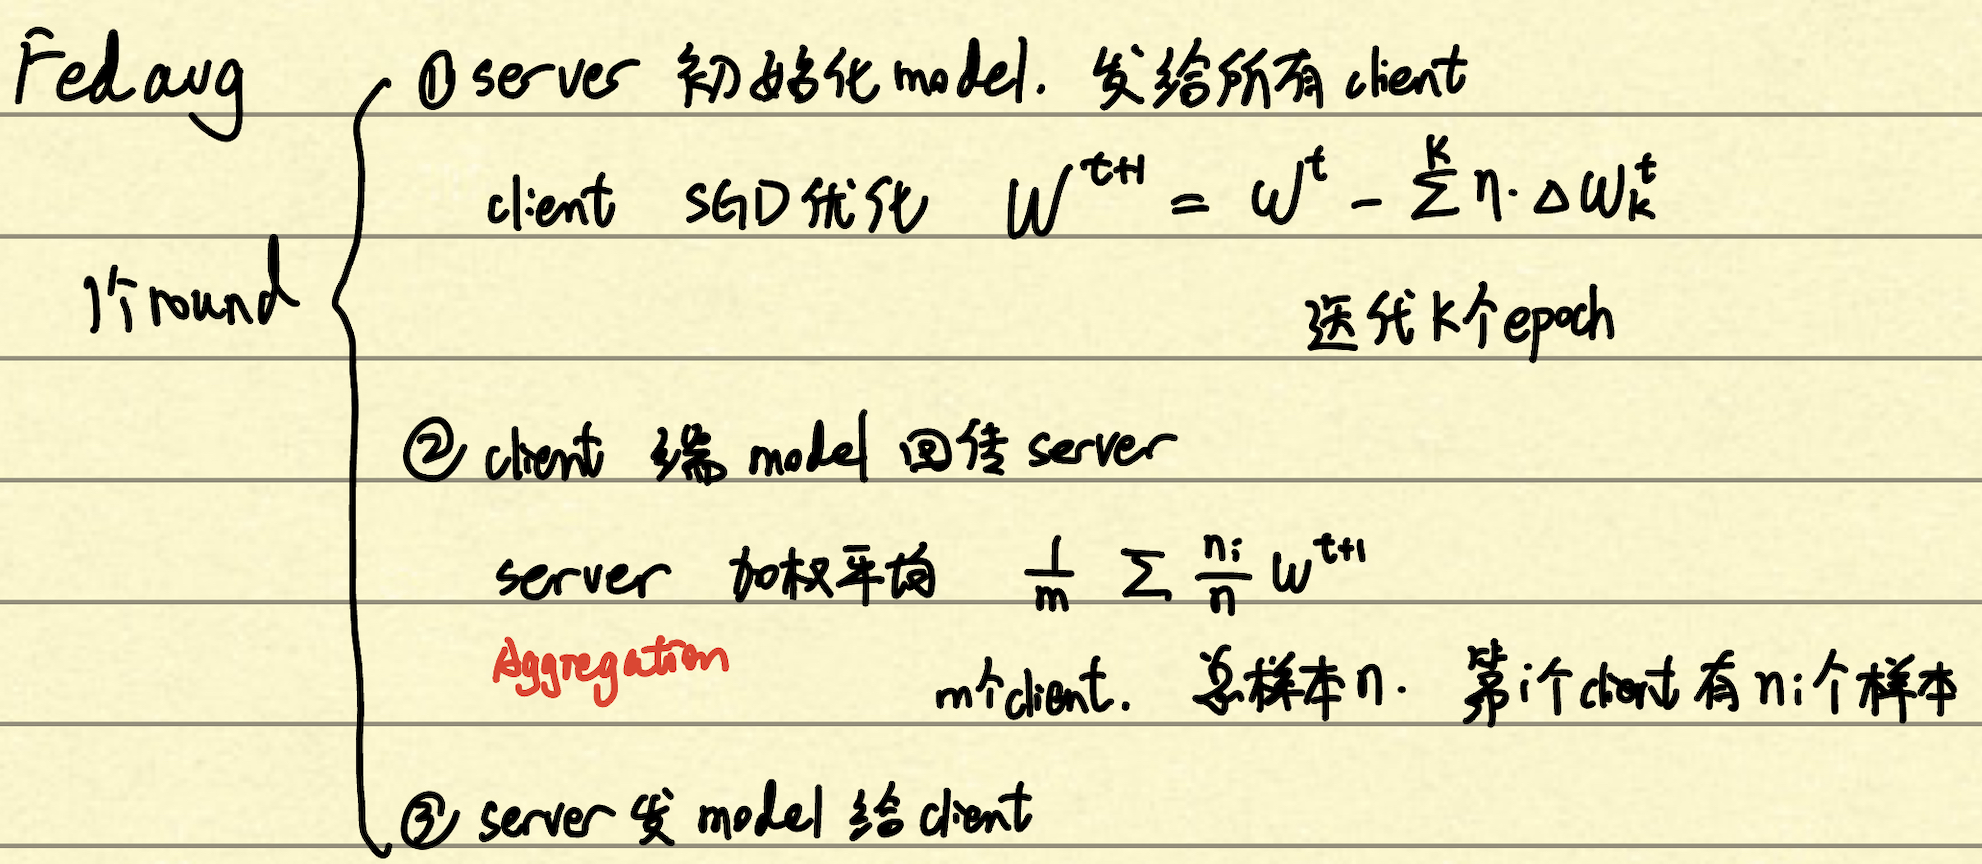 Fedavg
① server 初始化 model. 发给所有 client
client SGD优化 W^{t+1} = w^t - \sum^{K} η·ΔW_k^t
1个round
迭代 K个epoch
② client 端 model 回传 server
server 加权平均 \frac{1}{m} \sum \frac{n_i}{n} w^{t+1}
Aggregation
m个client. 总样本n. 第i个client有ni个样本
③ server 发 model 给 client